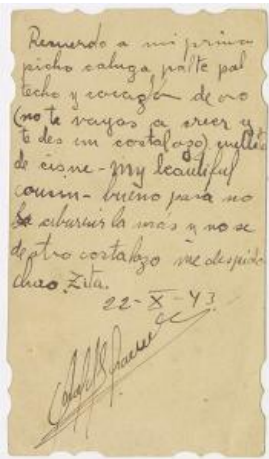 Recuerdo a mi prima
picho caluga patte pal
techo y corazón de oro
(no te vayas a creer y
te des un costalazo) cuellito
de cisne - My beautiful
cousin - bueno para no
aburrirla más y no se
de otro costalazo me despido
chao. Zita.
22-X-43.